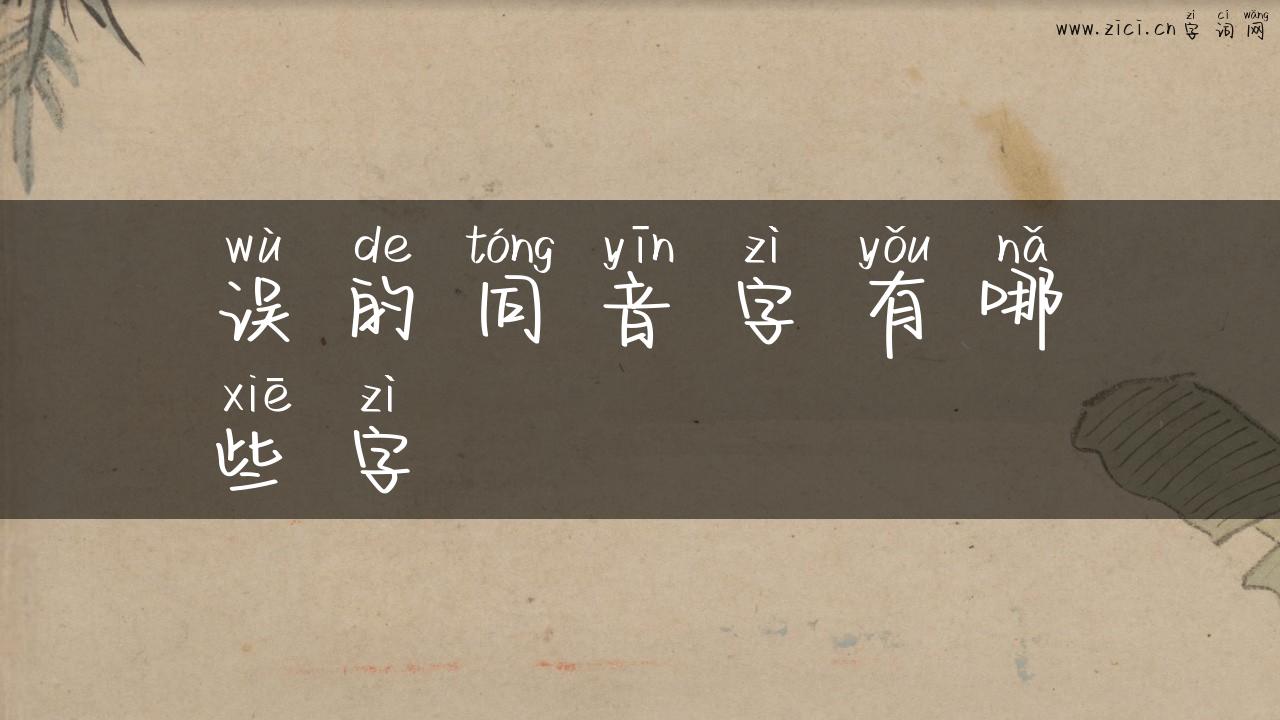 zì cí wǎng
www.zici.cn 字词网
wù de tóng yīn zì yǒu nǎ
误的同音字有哪
xiē zì
些字